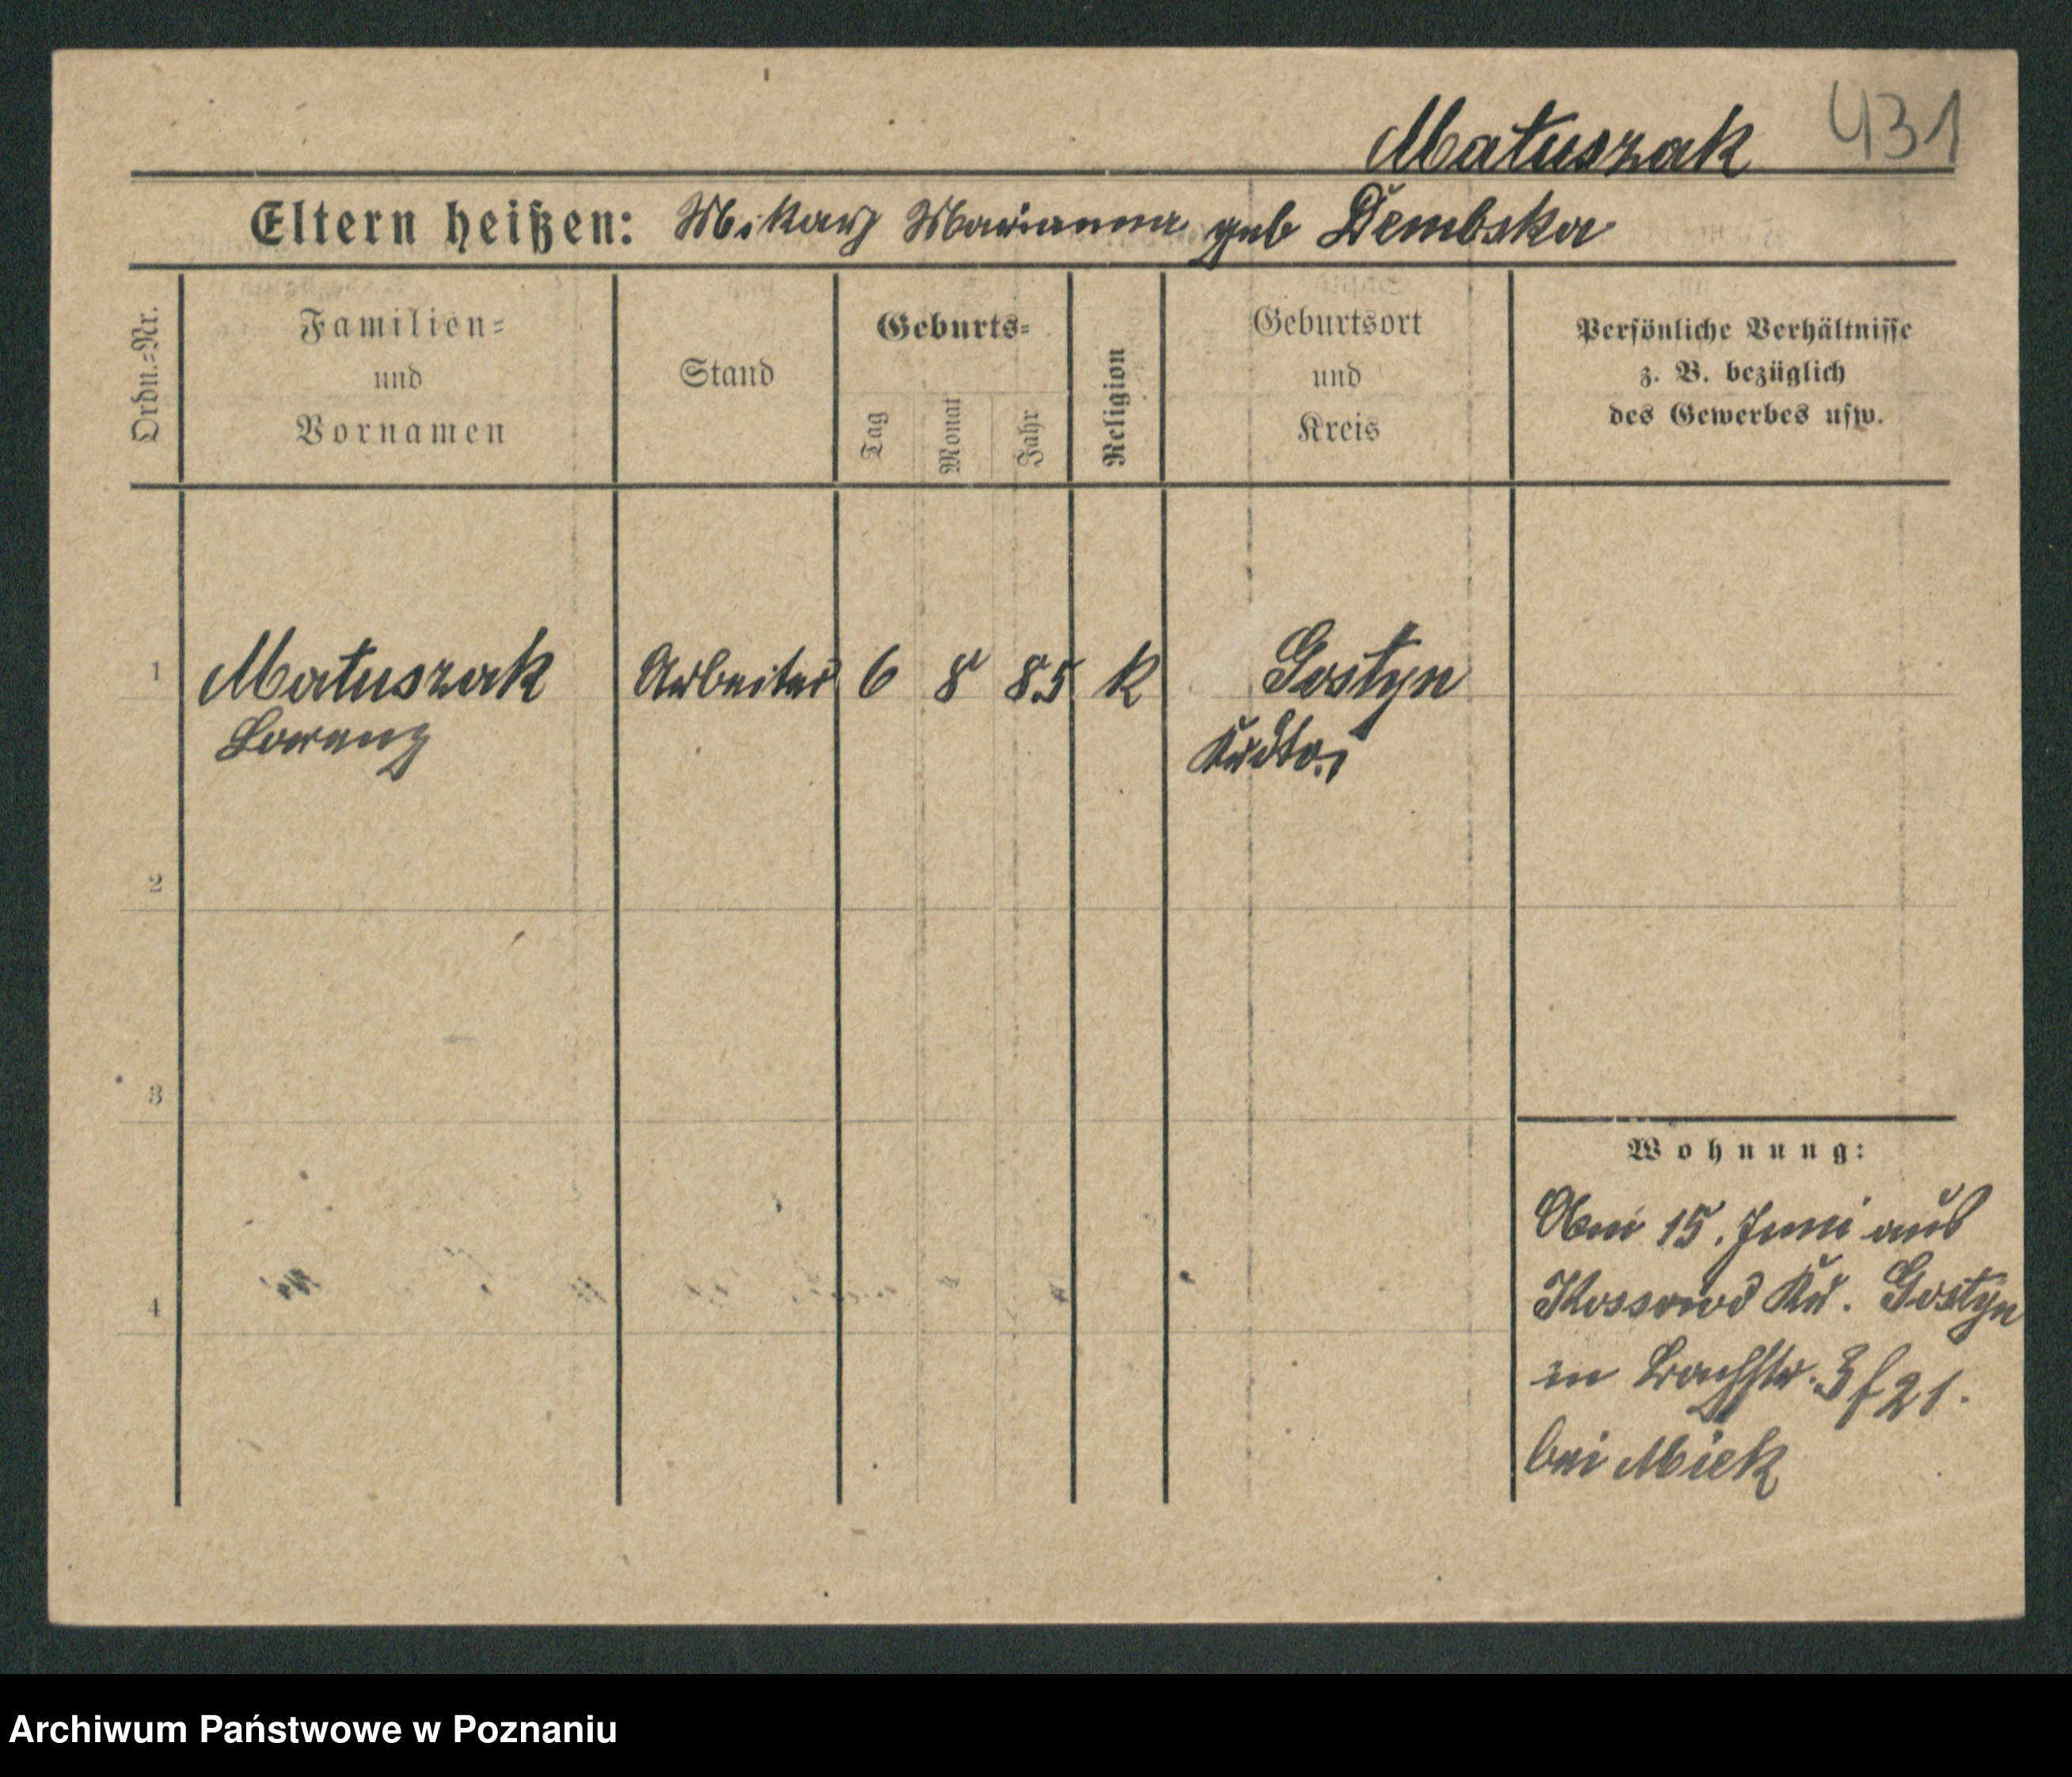 Matuszak 431
Eltern heißen: Marianna geb Dembska
Ordn.-Nr.
Familien-
und
Vornamen
Stand
Geburts-
Tag
Monat
Jahr
Religion
Geburtsort
und
Kreis
Persönliche Verhältnisse
z. B. bezüglich
des Gewerbes usw.
1 Matuszak Arbeiter 6 8 85 k Gostyn
Lorenz
2
3
4
Wohnung:
Am 15. Juni aus
Kossowo Kr. Gostyn
in 3 f 21.
bei Miek
Archiwum Państwowe w Poznaniu